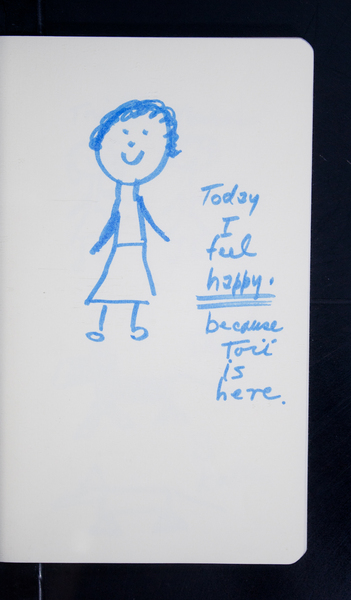 Today
I
feel
happy.
because
Torii
is
here.